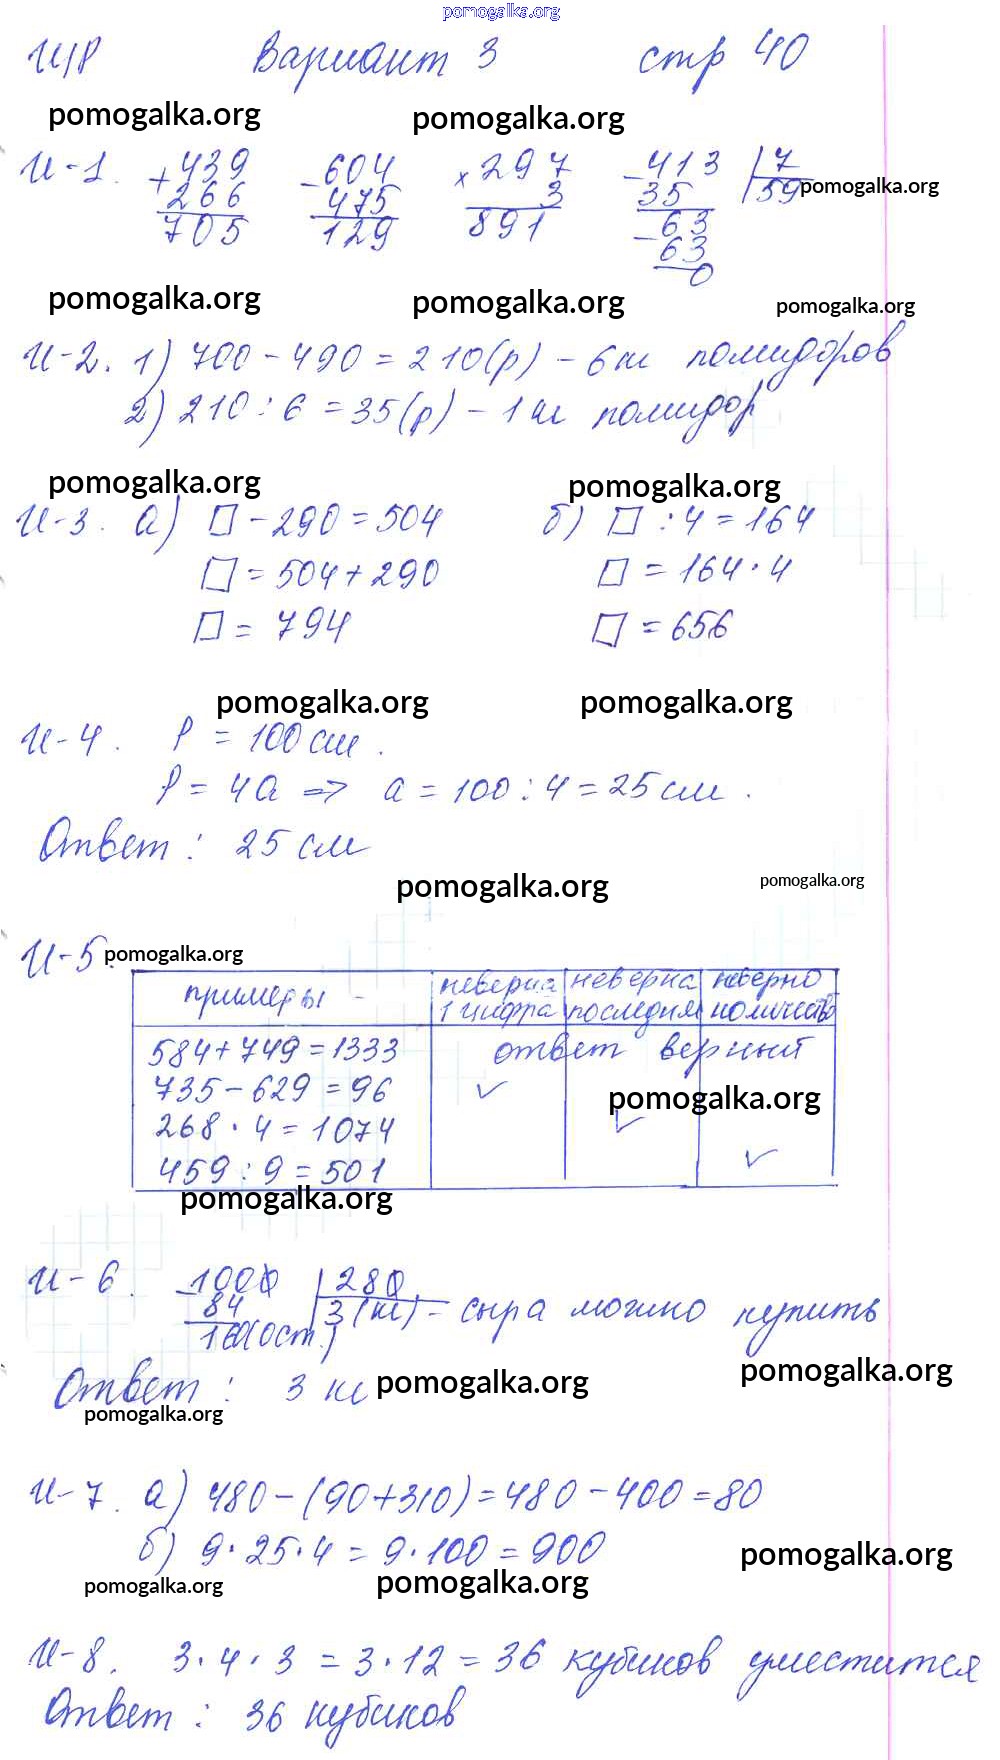 pomogalka.org
И/Р Вариант 3 стр 40
pomogalka.org pomogalka.org
И-1. +439 -604 ×297 -413 |7
266 475 3 35 59 pomogalka.org
705 129 891 -63
63
0
pomogalka.org pomogalka.org pomogalka.org
И-2. 1) 700 - 490 = 210(р) - 6 кг помидоров
2) 210 : 6 = 35(р) - 1 кг помидор
pomogalka.org pomogalka.org
И-3. а) □ - 290 = 504 б) □ : 4 = 164
□ = 504 + 290 □ = 164 · 4
□ = 794 □ = 656
pomogalka.org pomogalka.org
И-4. P = 100 см.
P = 4а => а = 100 : 4 = 25 см.
Ответ: 25 см
pomogalka.org pomogalka.org
И-5. pomogalka.org
примеры - неверна неверна неверно
1 цифра последняя количество
584 + 749 = 1333 ответ верный
735 - 629 = 96 ✓ pomogalka.org
268 · 4 = 1074 ✓
459 : 9 = 501 ✓
pomogalka.org
И-6. -1000 |280
84 3 (кг) - сыра можно купить
160(ост.)
Ответ: 3 кг pomogalka.org pomogalka.org
pomogalka.org
И-7. а) 480 - (90 + 310) = 480 - 400 = 80
б) 9 · 25 · 4 = 9 · 100 = 900 pomogalka.org
pomogalka.org pomogalka.org
И-8. 3 · 4 · 3 = 3 · 12 = 36 кубиков уместится
Ответ: 36 кубиков